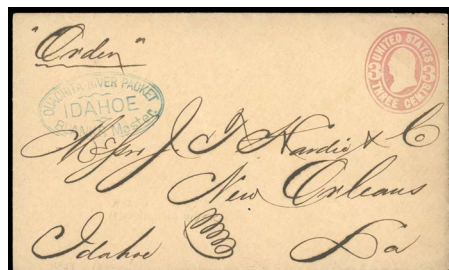 "Orden"
UNITED STATES
3 3
THREE CENTS
OUACHITA RIVER PACKET
IDAHOE
Master
Messrs J. T. Hardie & C
New Orleans
Idahoe La